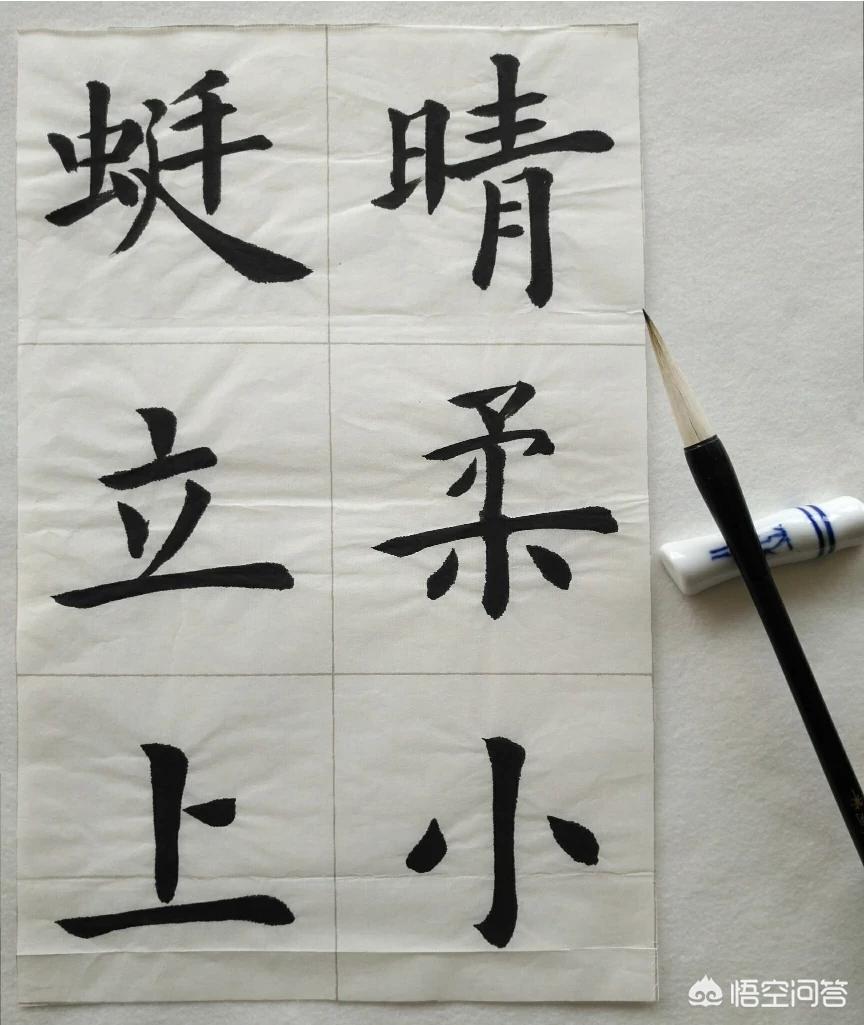 晴柔小
蜓立上
悟空问答